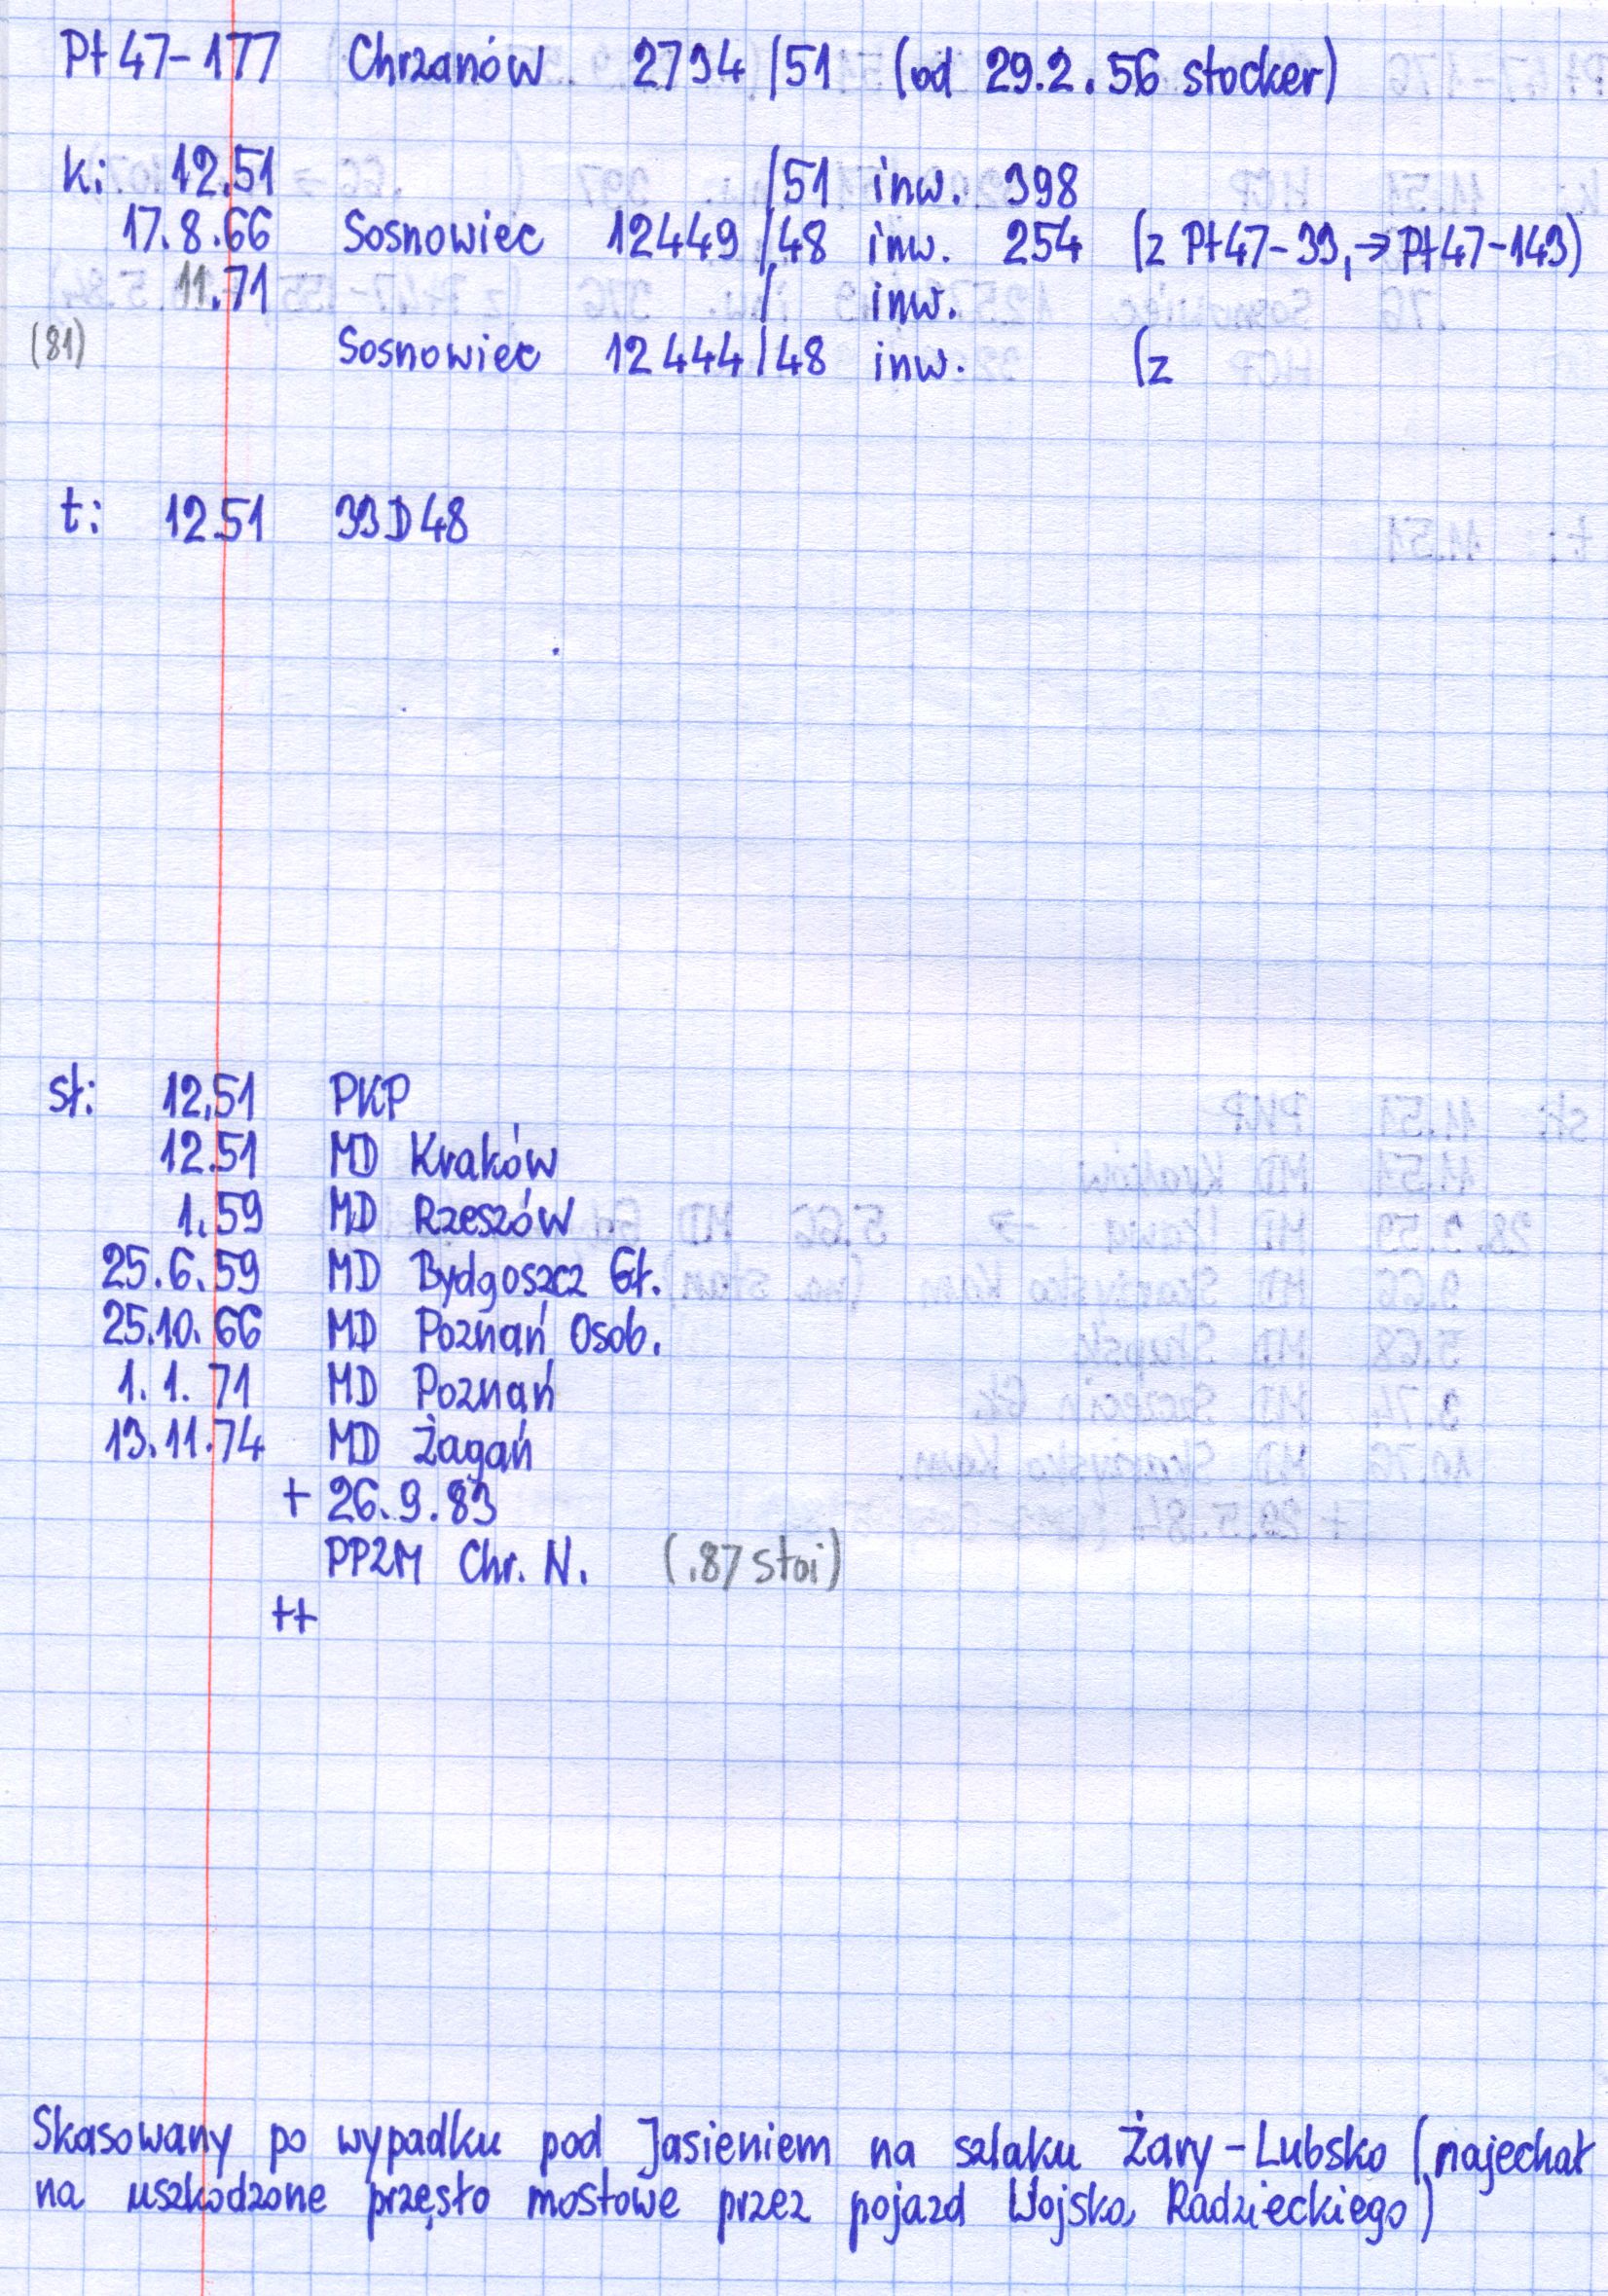 Pt47-177 Chrzanów 2794/51 (od 29.2.56 stocker)
k: 12.51 /51 inw. 398
17.8.66 Sosnowiec 12449/48 inw. 254 (z Pt47-39, → Pt47-143)
11.71 / inw.
(81) Sosnowiec 12444/48 inw. (z
t: 12.51 33D48
sł: 12.51 PKP
12.51 MD Kraków
1.59 MD Rzeszów
25.6.59 MD Bydgoszcz Gł.
25.10.66 MD Poznań Osob.
1.1.71 MD Poznań
13.11.74 MD Żagań
+ 26.9.83
PPZM Chr. N. (.87 stoi)
++
Skasowany po wypadku pod Jasieniem na szlaku Żary-Lubsko (najechał
na uszkodzone przęsło mostowe przez pojazd Wojska Radzieckiego)